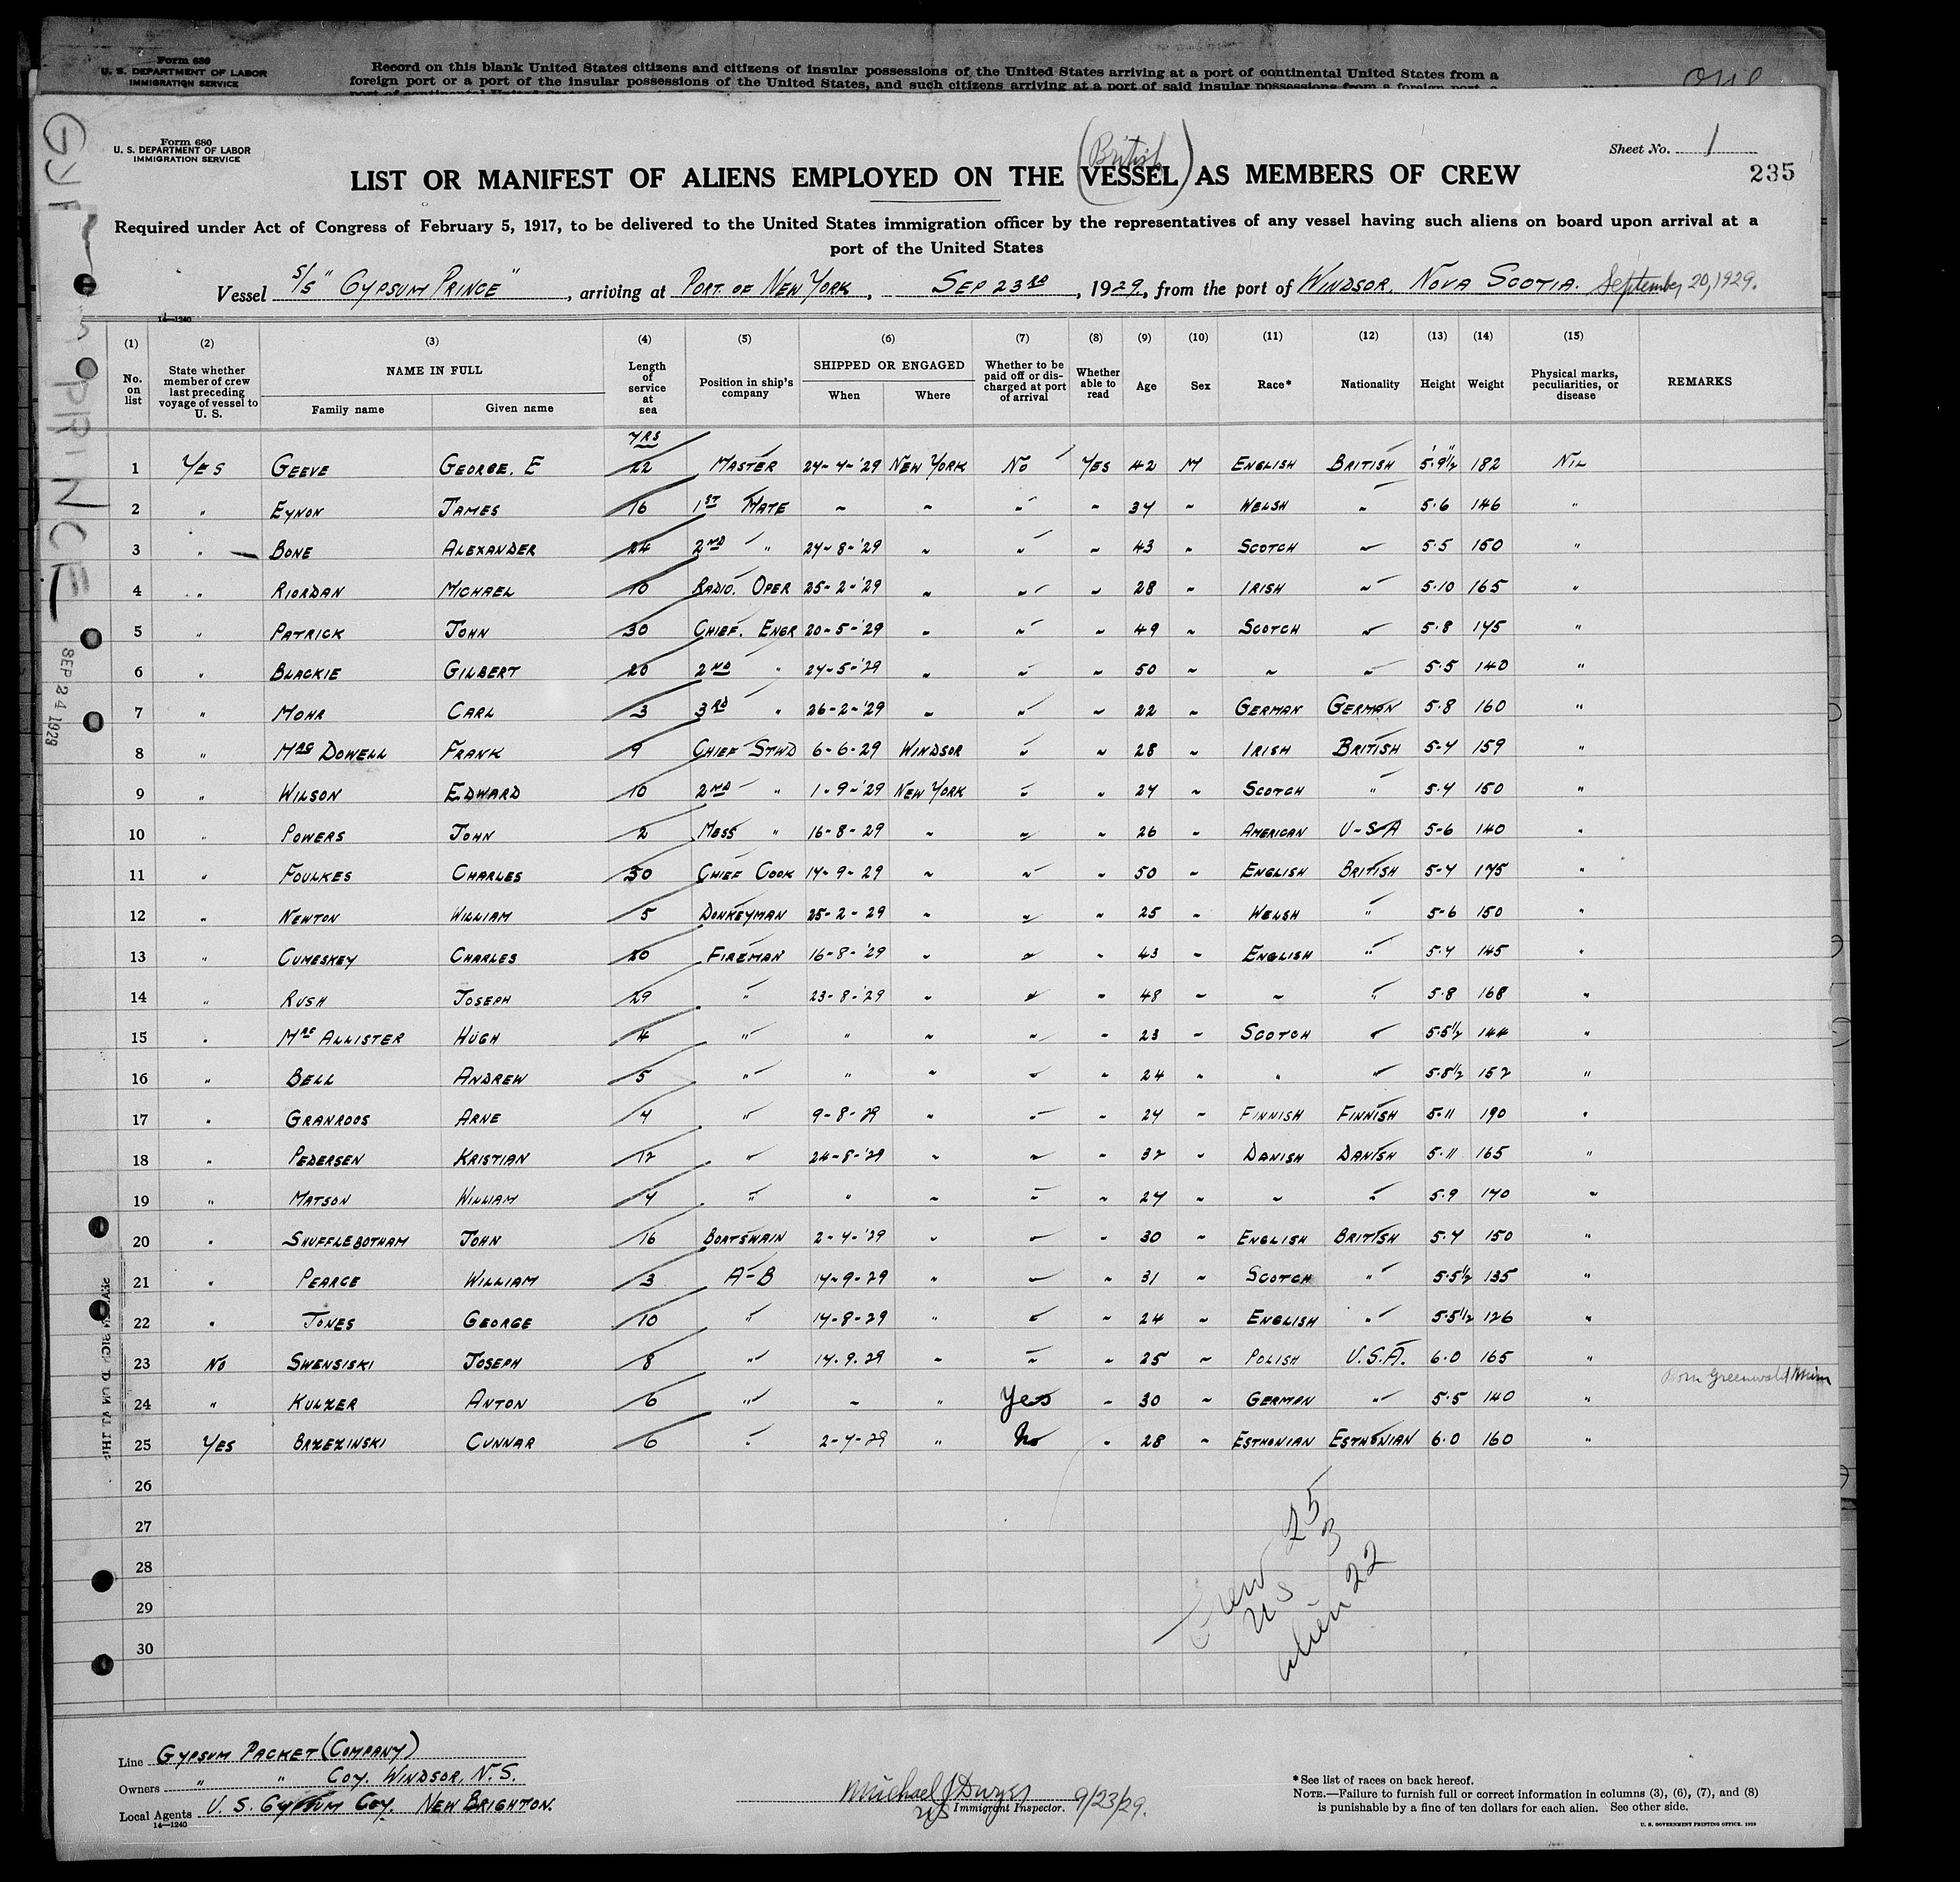 Form 680
U. S. DEPARTMENT OF LABOR
IMMIGRATION SERVICE
Record on this blank United States citizens and citizens of insular possessions of the United States arriving at a port of continental United States from a
foreign port or a port of the insular possessions of the United States, and such citizens arriving at a port of said insular possessions from a foreign port, a
Form 680
U. S. DEPARTMENT OF LABOR
IMMIGRATION SERVICE
Sheet No. 1
235
(British)
LIST OR MANIFEST OF ALIENS EMPLOYED ON THE VESSEL AS MEMBERS OF CREW
Required under Act of Congress of February 5, 1917, to be delivered to the United States immigration officer by the representatives of any vessel having such aliens on board upon arrival at a
port of the United States
Vessel S/S "GYPSUM PRINCE", arriving at PORT OF NEW YORK, SEP 23RD, 1929, from the port of WINDSOR, NOVA SCOTIA. September 20, 1929.
14—1240
(1) (2) (3) (4) (5) (6) (7) (8) (9) (10) (11) (12) (13) (14) (15)
No. on list
State whether member of crew last preceding voyage of vessel to U. S.
NAME IN FULL
Family name
Given name
Length of service at sea
Position in ship's company
SHIPPED OR ENGAGED
When
Where
Whether to be paid off or discharged at port of arrival
Whether able to read
Age
Sex
Race*
Nationality
Height
Weight
Physical marks, peculiarities, or disease
REMARKS
YRS
1 YES GEEVE GEORGE. E 22 MASTER 24-4-'29 NEW YORK NO YES 42 M ENGLISH BRITISH 5'.9½" 182 NIL
2 " EYNON JAMES 16 1ST MATE " " " " 34 " WELSH " 5.6 146 "
3 " BONE ALEXANDER 24 2ND " 24-8-'29 " " " 43 " SCOTCH " 5.5 150 "
4 " RIORDAN MICHAEL 10 RADIO. OPER 25-2-'29 " " " 28 " IRISH " 5.10 165 "
5 " PATRICK JOHN 30 CHIEF. ENGR 20-5-'29 " " " 49 " SCOTCH " 5.8 145 "
6 " BLACKIE GILBERT 20 2ND " 24-5-'29 " " " 50 " " " 5.5 140 "
7 " MOHR CARL 3 3RD " 26-2-'29 " " " 22 " GERMAN GERMAN 5.8 160 "
8 " MAC DOWELL FRANK 9 CHIEF STWD 6-6-29 WINDSOR " " 28 " IRISH BRITISH 5-4 159 "
9 " WILSON EDWARD 10 2ND " 1-9-'29 NEW YORK " " 24 " SCOTCH " 5.4 150 "
10 " POWERS JOHN 2 MESS " 16-8-29 " " " 26 " AMERICAN U-S-A 5-6 140 "
11 " FOULKES CHARLES 30 CHIEF COOK 14-9-29 " " " 50 " ENGLISH BRITISH 5-4 175 "
12 " NEWTON WILLIAM 5 DONKEYMAN 25-2-29 " " " 25 " WELSH " 5-6 150 "
13 " CUMESKEY CHARLES 20 FIREMAN 16-8-'29 " " " 43 " ENGLISH " 5.4 145 "
14 " RUSH JOSEPH 29 " 23-8-'29 " " " 48 " " " 5.8 168 "
15 " MAC ALLISTER HUGH 4 " " " " " 23 " SCOTCH " 5.5½ 144 "
16 " BELL ANDREW 5 " " " " " 24 " " " 5.8½ 152 "
17 " GRANROOS ARNE 4 " 9-8-29 " " " 24 " FINNISH FINNISH 5.11 190 "
18 " PEDERSEN KRISTIAN 12 " 24-8-'29 " " " 32 " DANISH DANISH 5.11 165 "
19 " MATSON WILLIAM 4 " " " " " 24 " " " 5.9 170 "
20 " SHUFFLEBOTHAM JOHN 16 BOATSWAIN 2-4-'29 " " " 30 " ENGLISH BRITISH 5.4 150 "
21 " PEARCE WILLIAM 3 A-B 14-9-29 " " " 31 " SCOTCH " 5.5½ 135 "
22 " JONES GEORGE 10 " 14-8-29 " " " 24 " ENGLISH " 5.5½ 126 "
23 NO SWENSISKI JOSEPH 8 " 14.9.29 " " " 25 " POLISH U.S.A. 6.0 165 "
24 " KULZER ANTON 6 " " " Yes " 30 " GERMAN " 5.5 140 " Born Greenwald Minn
25 YES BRZEZINSKI GUNNAR 6 " 2-4-29 " No " 28 " ESTHONIAN ESTHONIAN 6.0 160 "
26
27
28
29
30
Crew 25
US 3
Alien 22
Line GYPSUM PACKET (COMPANY)
Owners " " COY. WINDSOR, N.S.
Local Agents U. S. GYPSUM COY. NEW BRIGHTON.
14—1240
Michael J Dwyer
Immigrant Inspector. 9/23/29.
*See list of races on back hereof.
NOTE.—Failure to furnish full or correct information in columns (3), (6), (7), and (8)
is punishable by a fine of ten dollars for each alien. See other side.
U. S. GOVERNMENT PRINTING OFFICE: 1929
GYPSUM PRINCE
SEP 24 1929